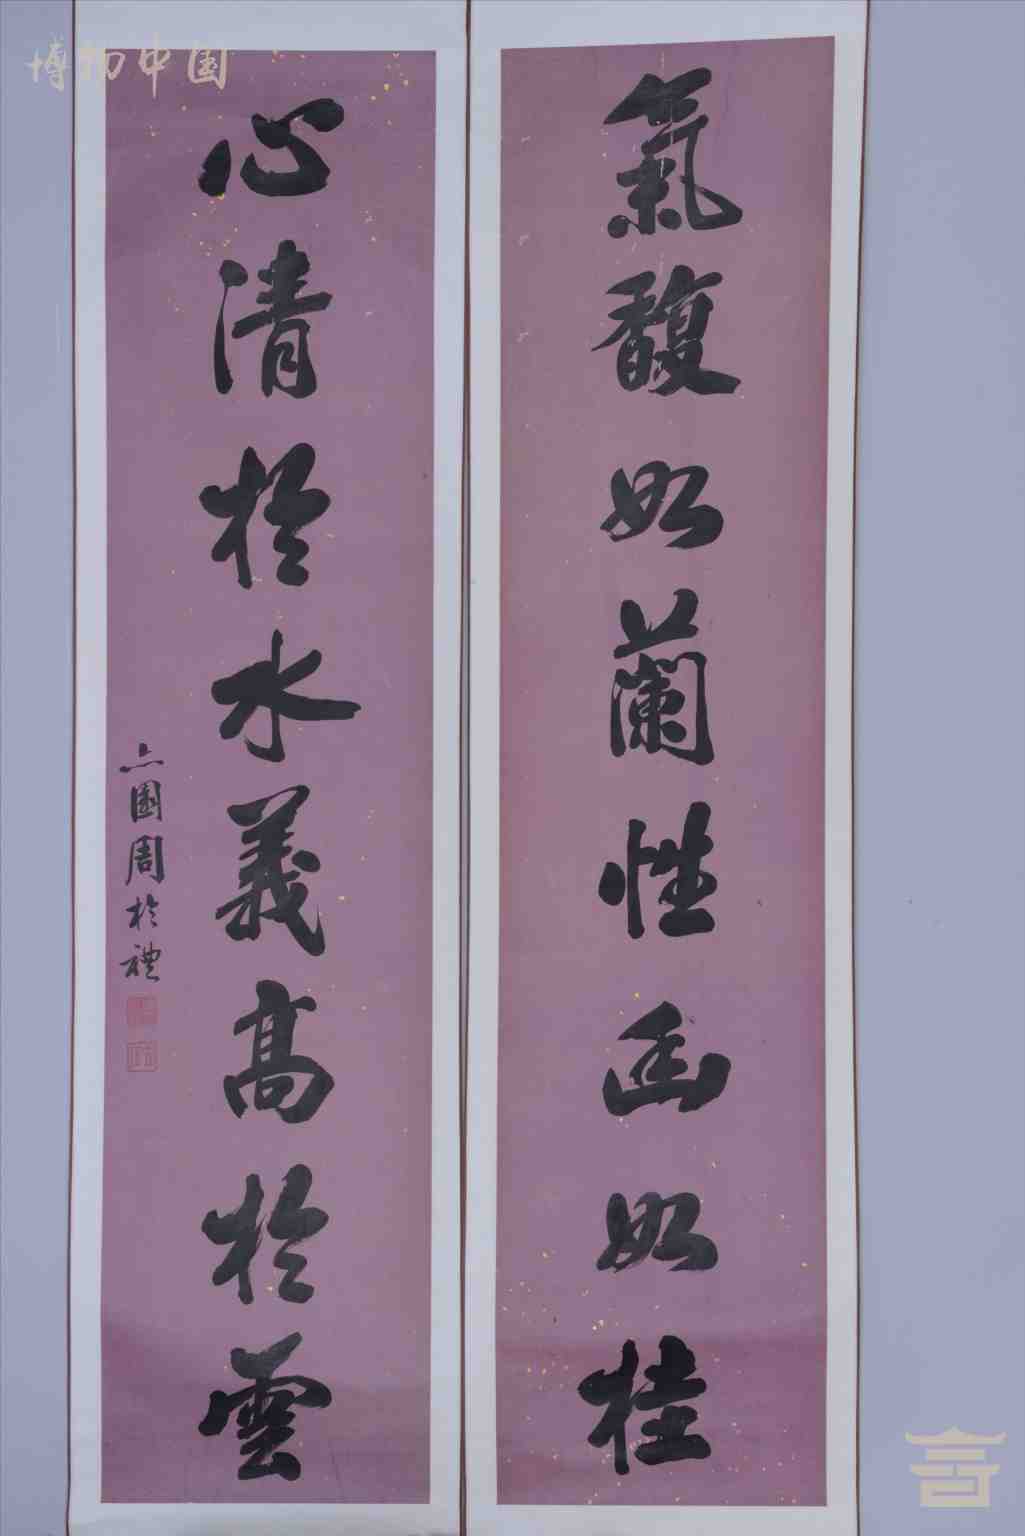 氣馥如蘭性幽如桂
心清於水義高於雲
亦園周於禮
博物中国